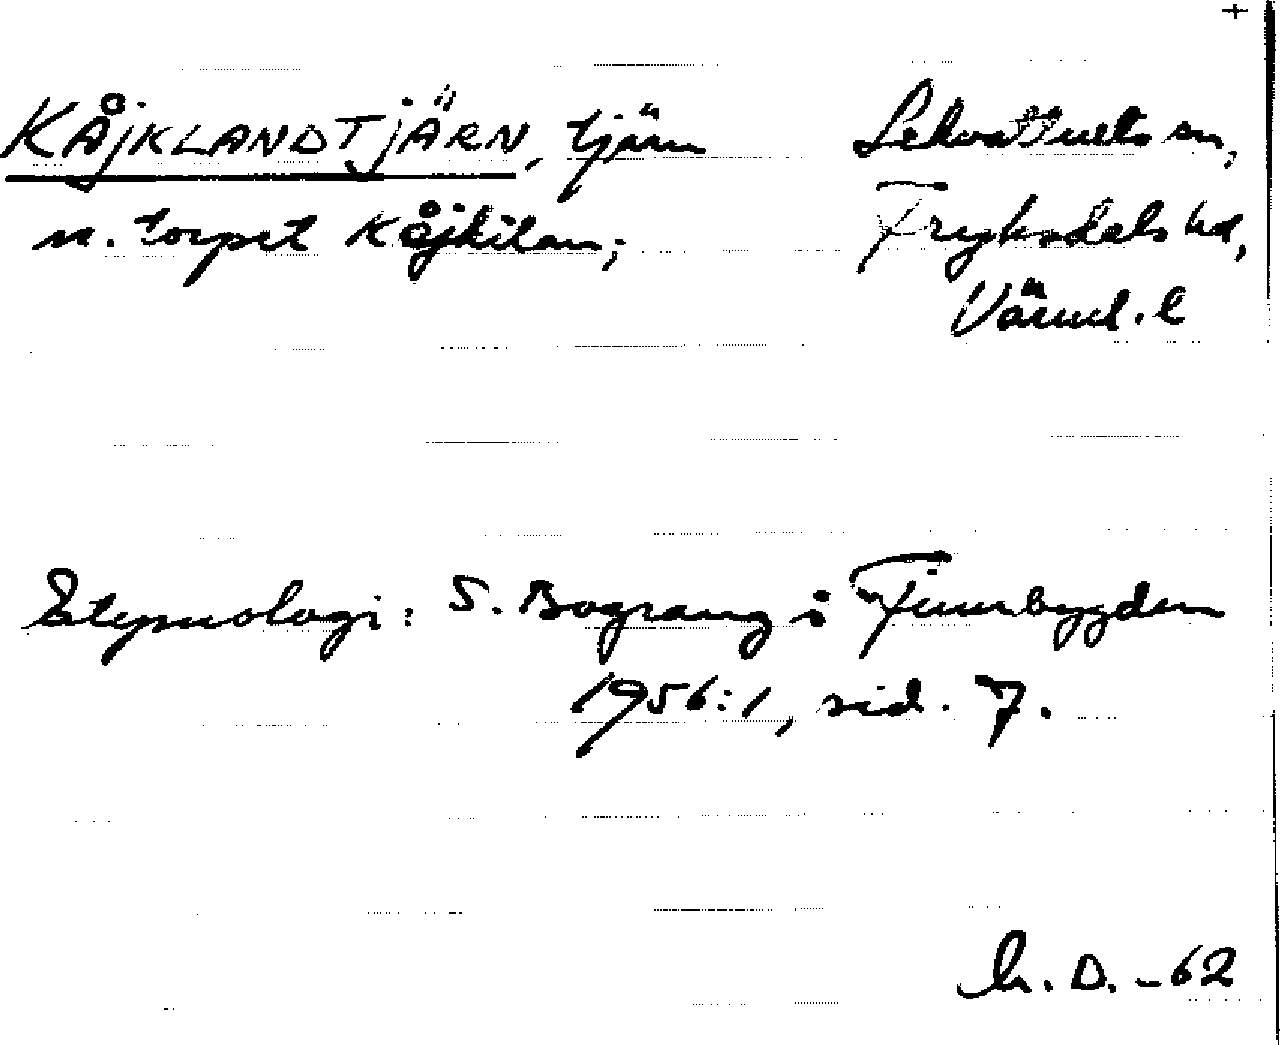 +
KÅJKLANDTJÄRN, tjärn
n. torpet Kåjkilan;
Lekvattnets sn,
Fryksdals hd,
Värml. l
Etymologi: S. Bograng i Finnbygden
1956:1, sid. 7.
h. D. -62